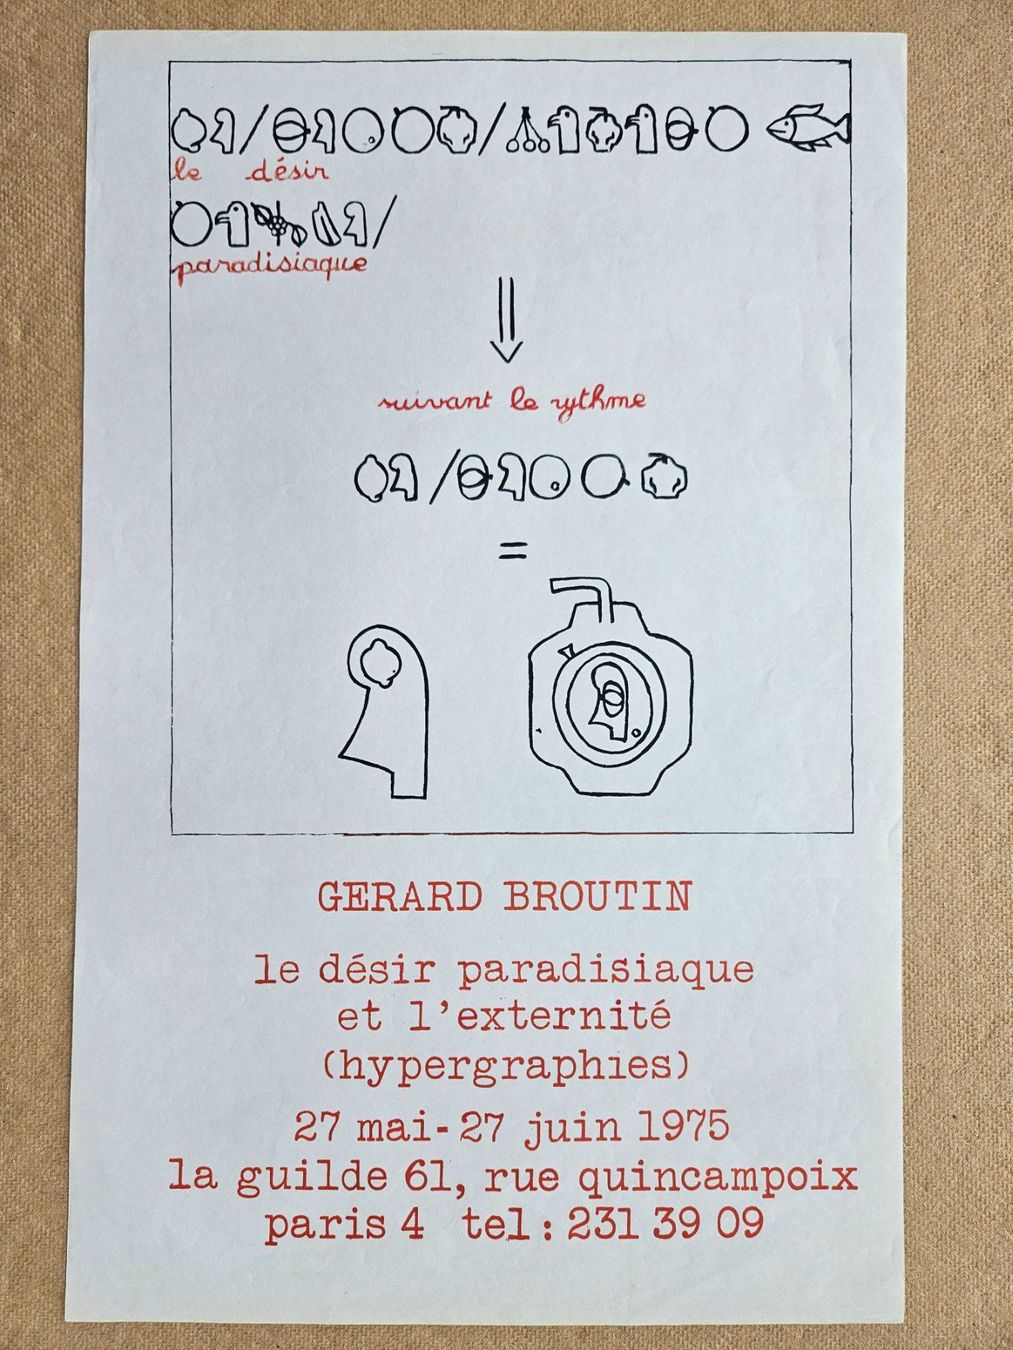 le désir
paradisiaque
suivant le rythme
=
GERARD BROUTIN
le désir paradisiaque
et l'externité
(hypergraphies)
27 mai-27 juin 1975
la guilde 61, rue quincampoix
paris 4 tel: 231 39 09